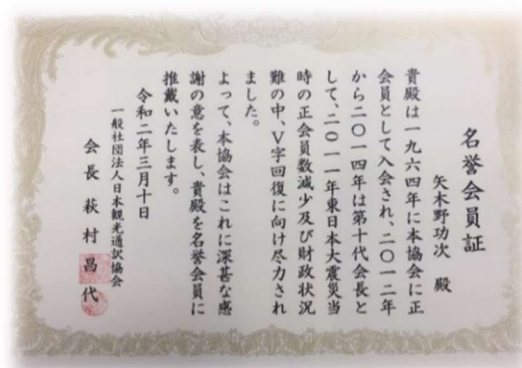 名誉会員証
矢木野功次 殿
貴殿は一九六四年に本協会に正
会員として入会され、二〇一二年
から二〇一四年は第十代会長と
して、二〇一一年東日本大震災当
時の正会員数減少及び財政状況
難の中、V字回復に向け尽力され
ました。
よって、本協会はこれに深甚な感
謝の意を表し、貴殿を名誉会員に
推戴いたします。
令和二年三月十日
一般社団法人日本観光通訳協会
会長 萩村昌代